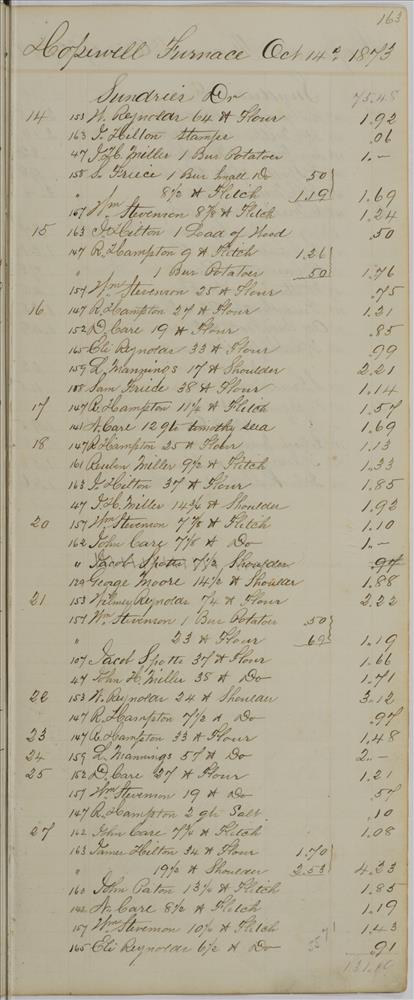 163
Hopewell Furnace Oct 14th 1873
Sundries Dr 75.48
14 153 W. Reynolds 64 # Flour 1.92
163 J. Hilton Stamps .06
47 J. H. Miller 1 Bus Potatoes 1.—
158 S. Friece 1 Bus Small Do 50
" 8½ # Flitch 1.19 1.69
157 Wm Stevenson 8⅞ # Flitch 1.24
15 163 J. Hilton 1 Load of Wood .50
147 R. Hampton 9 # Flitch 1.26
" 1 Bus Potatoes 50 1.76
157 Wm Stevenson 25 # Flour .75
16 147 R. Hampton 27 # Flour 1.21
152 D. Care 19 # Flour .85
165 Eli Reynolds 33 # Flour .99
159 L. Mannings 17 # Shoulder 2.21
158 Sam Friece 38 # Flour 1.14
17 147 R. Hampton 11½ # Flitch 1.57
141 N. Care 12 qts timothy sea 1.69
18 147 R. Hampton 25 # Flour 1.13
161 Reuben Miller 9½ # Flitch 1.33
163 J. Hilton 37 # Flour 1.85
47 J. H. Miller 14¾ # Shoulder 1.92
20 157 Wm Stevenson 7⅞ # Flitch 1.10
162 John Care 7⅛ # Do 1.—
" Jacob Spotts 7½ Shoulder .97
129 George Moore 14½ # Shoulder 1.88
21 153 Wilmey Reynolds 74 # Flour 2.22
157 Wm Stevenson 1 Bus Potatoes 50
" 23 # Flour 69 1.19
107 Jacob Spotts 37 # Flour 1.66
47 John H. Miller 38 # Do 1.71
22 153 W. Reynolds 24 # Shoulder 3.12
147 R. Hampton 7½ # Do .97
23 147 R. Hampton 33 # Flour 1.48
24 159 L. Mannings 57 # Do 2.—
25 152 D. Care 27 # Flour 1.21
157 Wm Stevenson 19 # Do .57
147 R. Hampton 2 qts Salt .10
27 162 John Care 7¾ # Flitch 1.08
163 James Hilton 34 # Flour 1.70
" 19½ # Shoulder 2.53 4.23
160 John Paton 13¼ # Flitch 1.85
142 N. Care 8½ # Flitch 1.19
157 Wm Stevenson 10¼ # Flitch 1.43
165 Eli Reynolds 6½ # Do .91
131.10